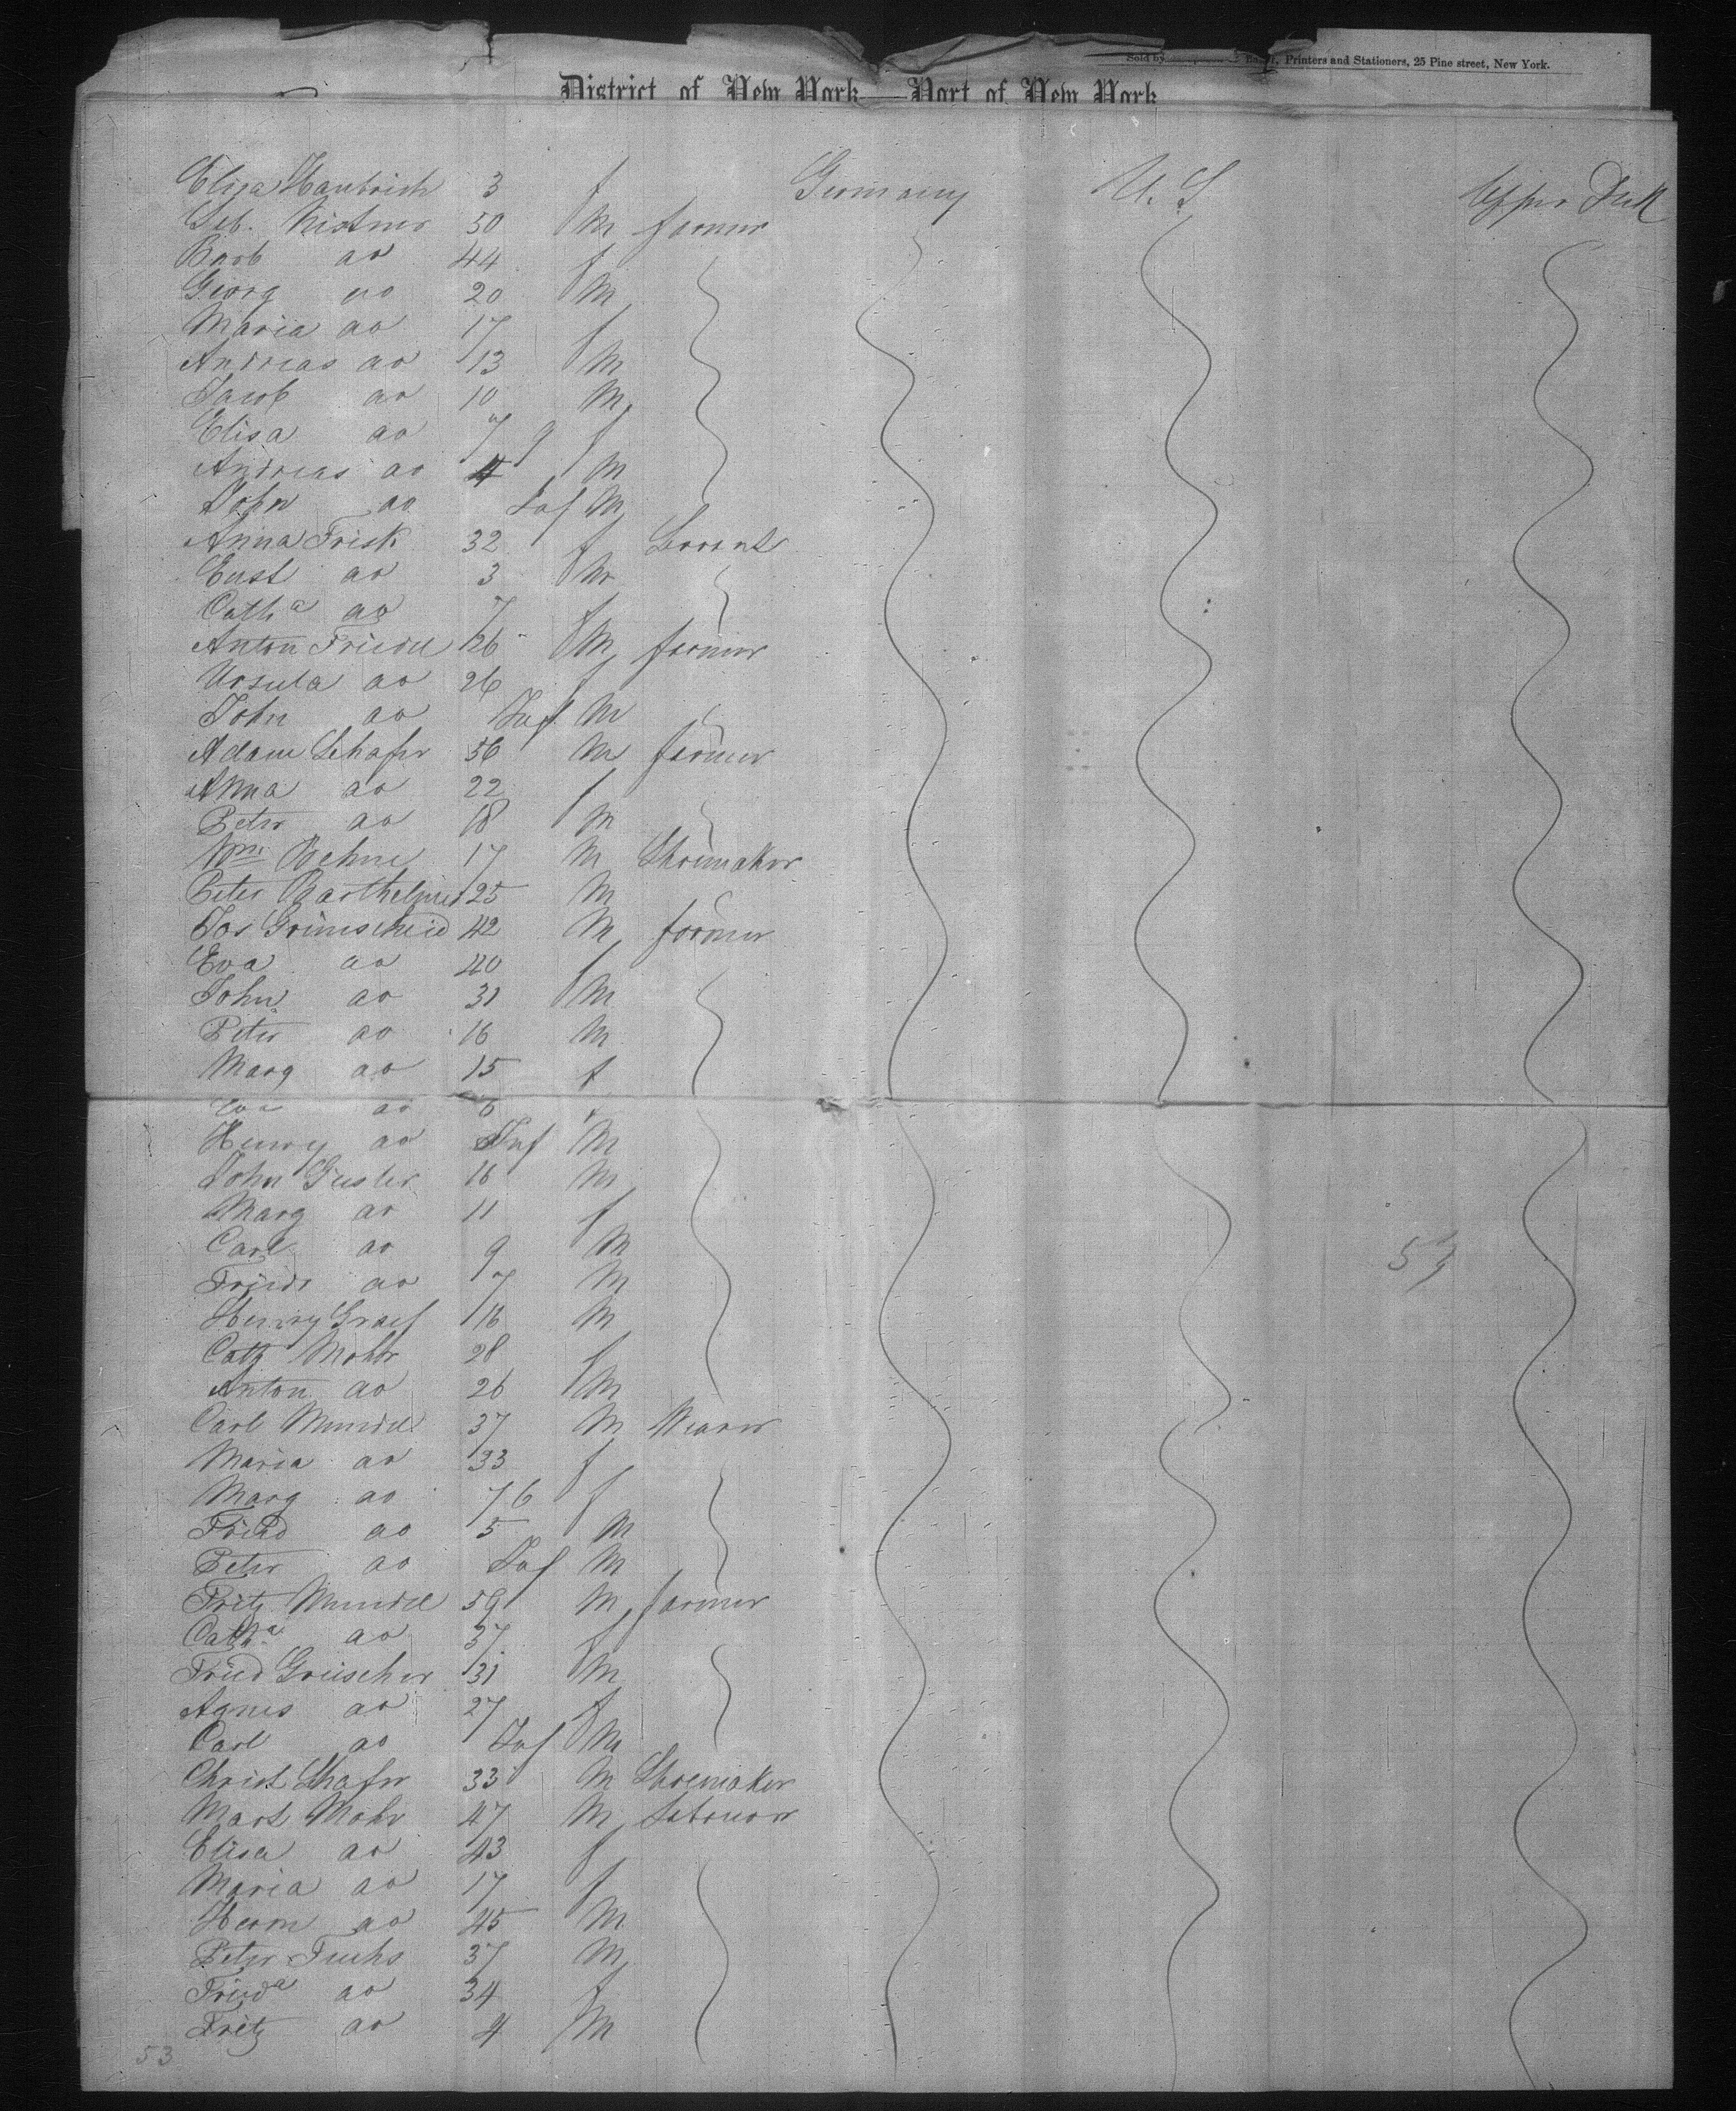 Printers and Stationers, 25 Pine street, New York.
District of New York — Port of New York
Eliza Hautrich 3 f Germany U.S Upper Deck
Seb. Kistner 50 M farmer
Barb do 44 f
Georg do 20 M
Maria do 17 f
Andreas do 13 M
Jacob do 10 M
Elisa do 7 9 f
Andreas do 4 M
John do Inf M
Anna Frisk 32 f Servant
Ernst do 3 M
Catha do 7 f
Anton Friedel 26 M farmer
Ursula do 26 f
John do Inf M
Adam Schafer 56 M farmer
Anna do 22 f
Peter do 18 M
Wm Behne 17 M Shoemaker
Peter Barthelmes 25 M
Jos Grimscheid 42 M farmer
Eva do 40 f
John do 31 M
Peter do 16 M
Marg do 15 f
Eva do 6
Henry do Inf M
John Geisler 16 M
Marg do 11 f
Carl do 9 M
Friedr do 7 M
Henry Graef 16 M
Cath Mohr 28 f
Anton do 26 M
Carl Mundel 37 M Weaver
Maria do 33 f
Marg do 7 6 f
Fried do 5 M
Peter do Inf M
Fritz Mundel 59 M farmer
Catha do 37 f
Fried Greischer 31 M
Agnes do 27 f
Carl do Inf M
Christ Shafer 33 M Shoemaker
Mart Mohr 47 M Laborer
Elisa do 43 f
Maria do 17 f
Herm do 45 M
Peter Fuchs 37 M
Frieda do 34 f
Fritz do 4 M
53
53